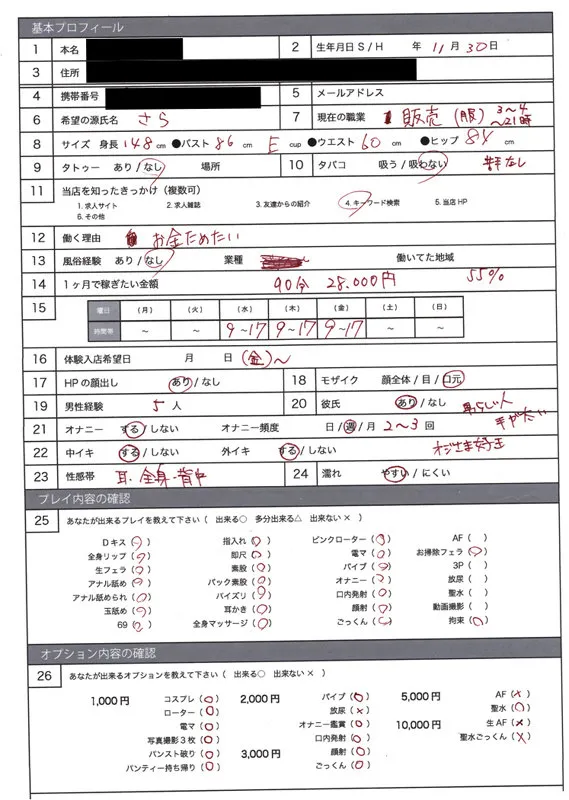 基本プロフィール
1 本名 2 生年月日 S / H 年 11 月 30 日
3 住所
4 携帯番号 5 メールアドレス
6 希望の源氏名 さら 7 現在の職業 販売 (服) 3〜4 〜21時
8 サイズ 身長 148 cm ●バスト 86 cm E cup ●ウエスト 60 cm ●ヒップ 84 cm
9 タトゥー あり / なし 場所 10 タバコ 吸う / 吸わない なし
11 当店を知ったきっかけ（複数可）
1. 求人サイト 2. 求人雑誌 3. 友達からの紹介 4. キーワード検索 5. 当店 HP
6. その他
12 働く理由 お金ためたい
13 風俗経験 あり / なし 業種 働いてた地域
14 1ヶ月で稼ぎたい金額 90分 28.000円 55%
15 曜日 （月） （火） （水） （木） （金） （土） （日）
時間帯 〜 〜 9〜17 9〜17 9〜17 〜 〜
16 体験入店希望日 月 日 (金)〜
17 HPの顔出し あり / なし 18 モザイク 顔全体 / 目 / 口元
19 男性経験 5 人 20 彼氏 あり / なし
21 オナニー する / しない オナニー頻度 日 / 週 / 月 2〜3 回
22 中イキ する / しない 外イキ する / しない
23 性感帯 耳・全身・背中 24 濡れ やすい / にくい
プレイ内容の確認
25 あなたが出来るプレイを教えて下さい（ 出来る○ 多分出来る△ 出来ない× ）
Dキス (○) 指入れ (○) ピンクローター (○) AF ( )
全身リップ (○) 即尺 (○) 電マ (○) お掃除フェラ (○)
生フェラ (○) 素股 (○) バイブ (○) 3P ( )
アナル舐め (○) バック素股 (○) オナニー (○) 放尿 ( )
アナル舐められ (○) パイズリ (○) 口内発射 (○) 聖水 ( )
玉舐め (○) 耳かき (○) 顔射 (○) 動画撮影 ( )
69 (○) 全身マッサージ (○) ごっくん (○) 拘束 (○)
オプション内容の確認
26 あなたが出来るオプションを教えて下さい（ 出来る○ 出来ない× ）
1,000円 コスプレ (○) 2,000円 バイブ (○) 5,000円 AF (×)
ローター (○) 放尿 (×) 聖水 (○)
電マ (○) オナニー鑑賞 (○) 10,000円 生AF (×)
写真撮影3枚 (○) 口内発射 (○) 聖水ごっくん (×)
パンスト破り (○) 3,000円 顔射 (○)
パンティー持ち帰り (○) ごっくん (○)